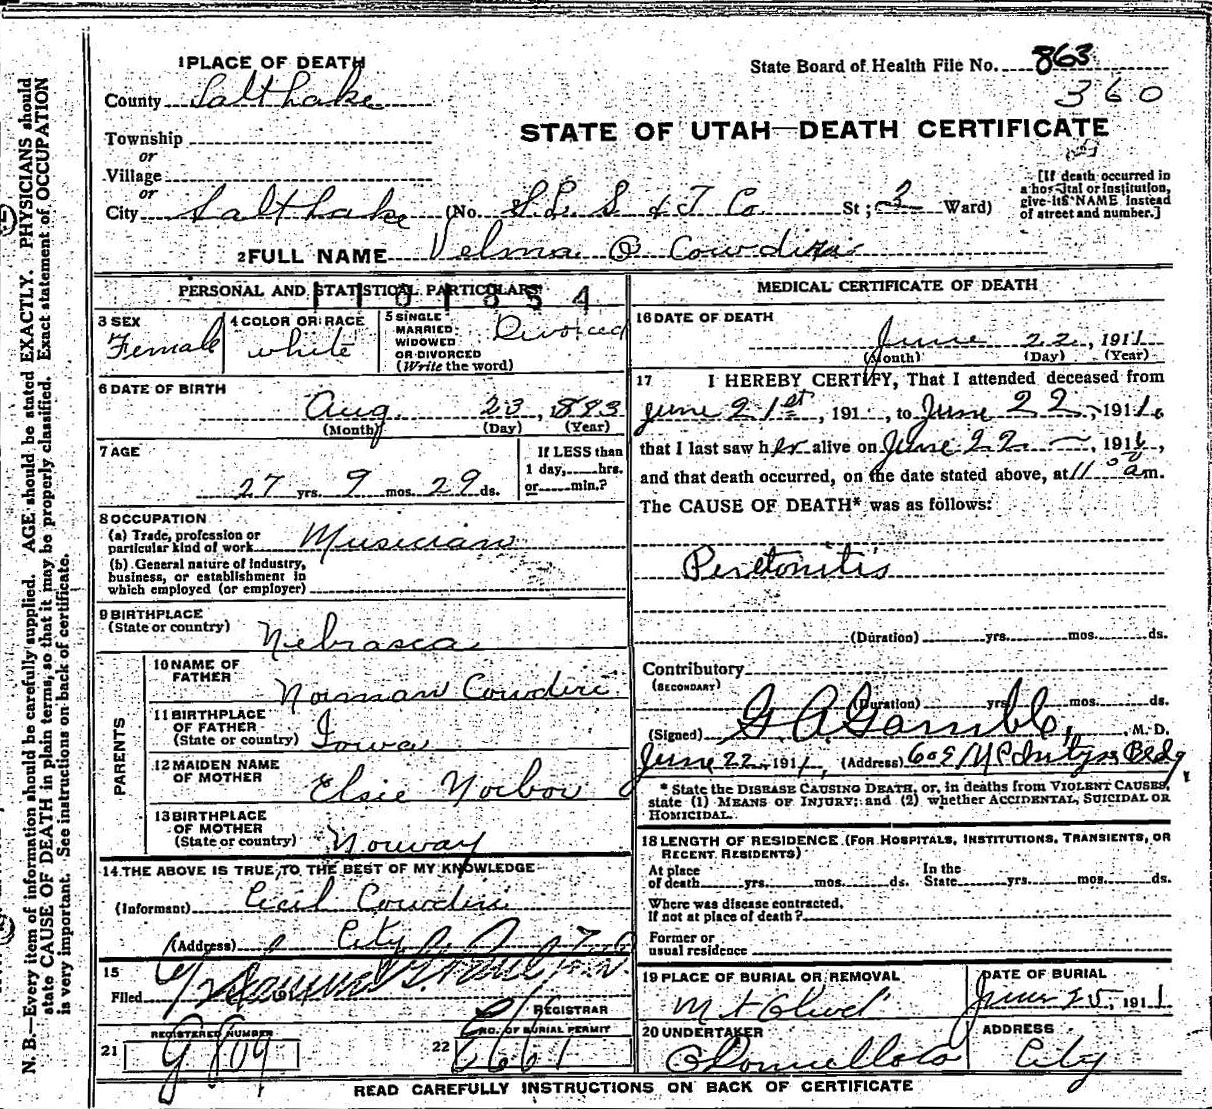 N. B.—Every item of information should be carefully supplied. AGE should be stated EXACTLY. PHYSICIANS should
state CAUSE OF DEATH in plain terms, so that it may be properly classified. Exact statement of OCCUPATION
is very important. See instructions on back of certificate.
1 PLACE OF DEATH
State Board of Health File No. 863
360
County Salt Lake
STATE OF UTAH—DEATH CERTIFICATE
Township
or
Village
or
City Salt Lake (No. S. L. S & T Co. St; 3 Ward)
[If death occurred in
a hospital or Institution,
give its NAME instead
of street and number.]
2 FULL NAME Velma O Cowdin
PERSONAL AND STATISTICAL PARTICULARS
1101834
3 SEX
Female
4 COLOR OR RACE
white
5 SINGLE
MARRIED
WIDOWED
OR DIVORCED
(Write the word)
Divorced
6 DATE OF BIRTH
Aug. 23, 1883
(Month) (Day) (Year)
7 AGE
27 yrs. 9 mos. 29 ds.
If LESS than
1 day, hrs.
or min.?
8 OCCUPATION
(a) Trade, profession or
particular kind of work Musician
(b) General nature of industry,
business, or establishment in
which employed (or employer)
9 BIRTHPLACE
(State or country)
Nebrasca
PARENTS
10 NAME OF
FATHER
Norman Cowdin
11 BIRTHPLACE
OF FATHER
(State or country) Iowa
12 MAIDEN NAME
OF MOTHER
Elsie Norbov
13 BIRTHPLACE
OF MOTHER
(State or country) Norway
14 THE ABOVE IS TRUE TO THE BEST OF MY KNOWLEDGE
(Informant) Cecil Cowdin
(Address) City
15
Filed
REGISTRAR
REGISTERED NUMBER
21 9809
NO. OF BURIAL PERMIT
22 6661
MEDICAL CERTIFICATE OF DEATH
16 DATE OF DEATH
June 22, 1911
(Month) (Day) (Year)
17 I HEREBY CERTIFY, That I attended deceased from
June 21st, 191 , to June 22, 1911,
that I last saw her alive on June 22, 1911,
and that death occurred, on the date stated above, at 11 am.
The CAUSE OF DEATH* was as follows:
Peretonitis
(Duration) yrs. mos. ds.
Contributory
(SECONDARY)
(Duration) yrs. mos. ds.
(Signed) G A Gamble, M. D.
June 22, 1911, (Address) 609 McIntyre Bldg
* State the DISEASE CAUSING DEATH, or, in deaths from VIOLENT CAUSES,
state (1) MEANS OF INJURY; and (2) whether ACCIDENTAL, SUICIDAL OR
HOMICIDAL.
18 LENGTH OF RESIDENCE (FOR HOSPITALS, INSTITUTIONS, TRANSIENTS, OR
RECENT RESIDENTS)
At place
of death yrs. mos. ds.
In the
State yrs. mos. ds.
Where was disease contracted,
If not at place of death?
Former or
usual residence
19 PLACE OF BURIAL OR REMOVAL
Mt Olivet
DATE OF BURIAL
June 25, 1911
20 UNDERTAKER
O'Donnell & Co
ADDRESS
City
READ CAREFULLY INSTRUCTIONS ON BACK OF CERTIFICATE